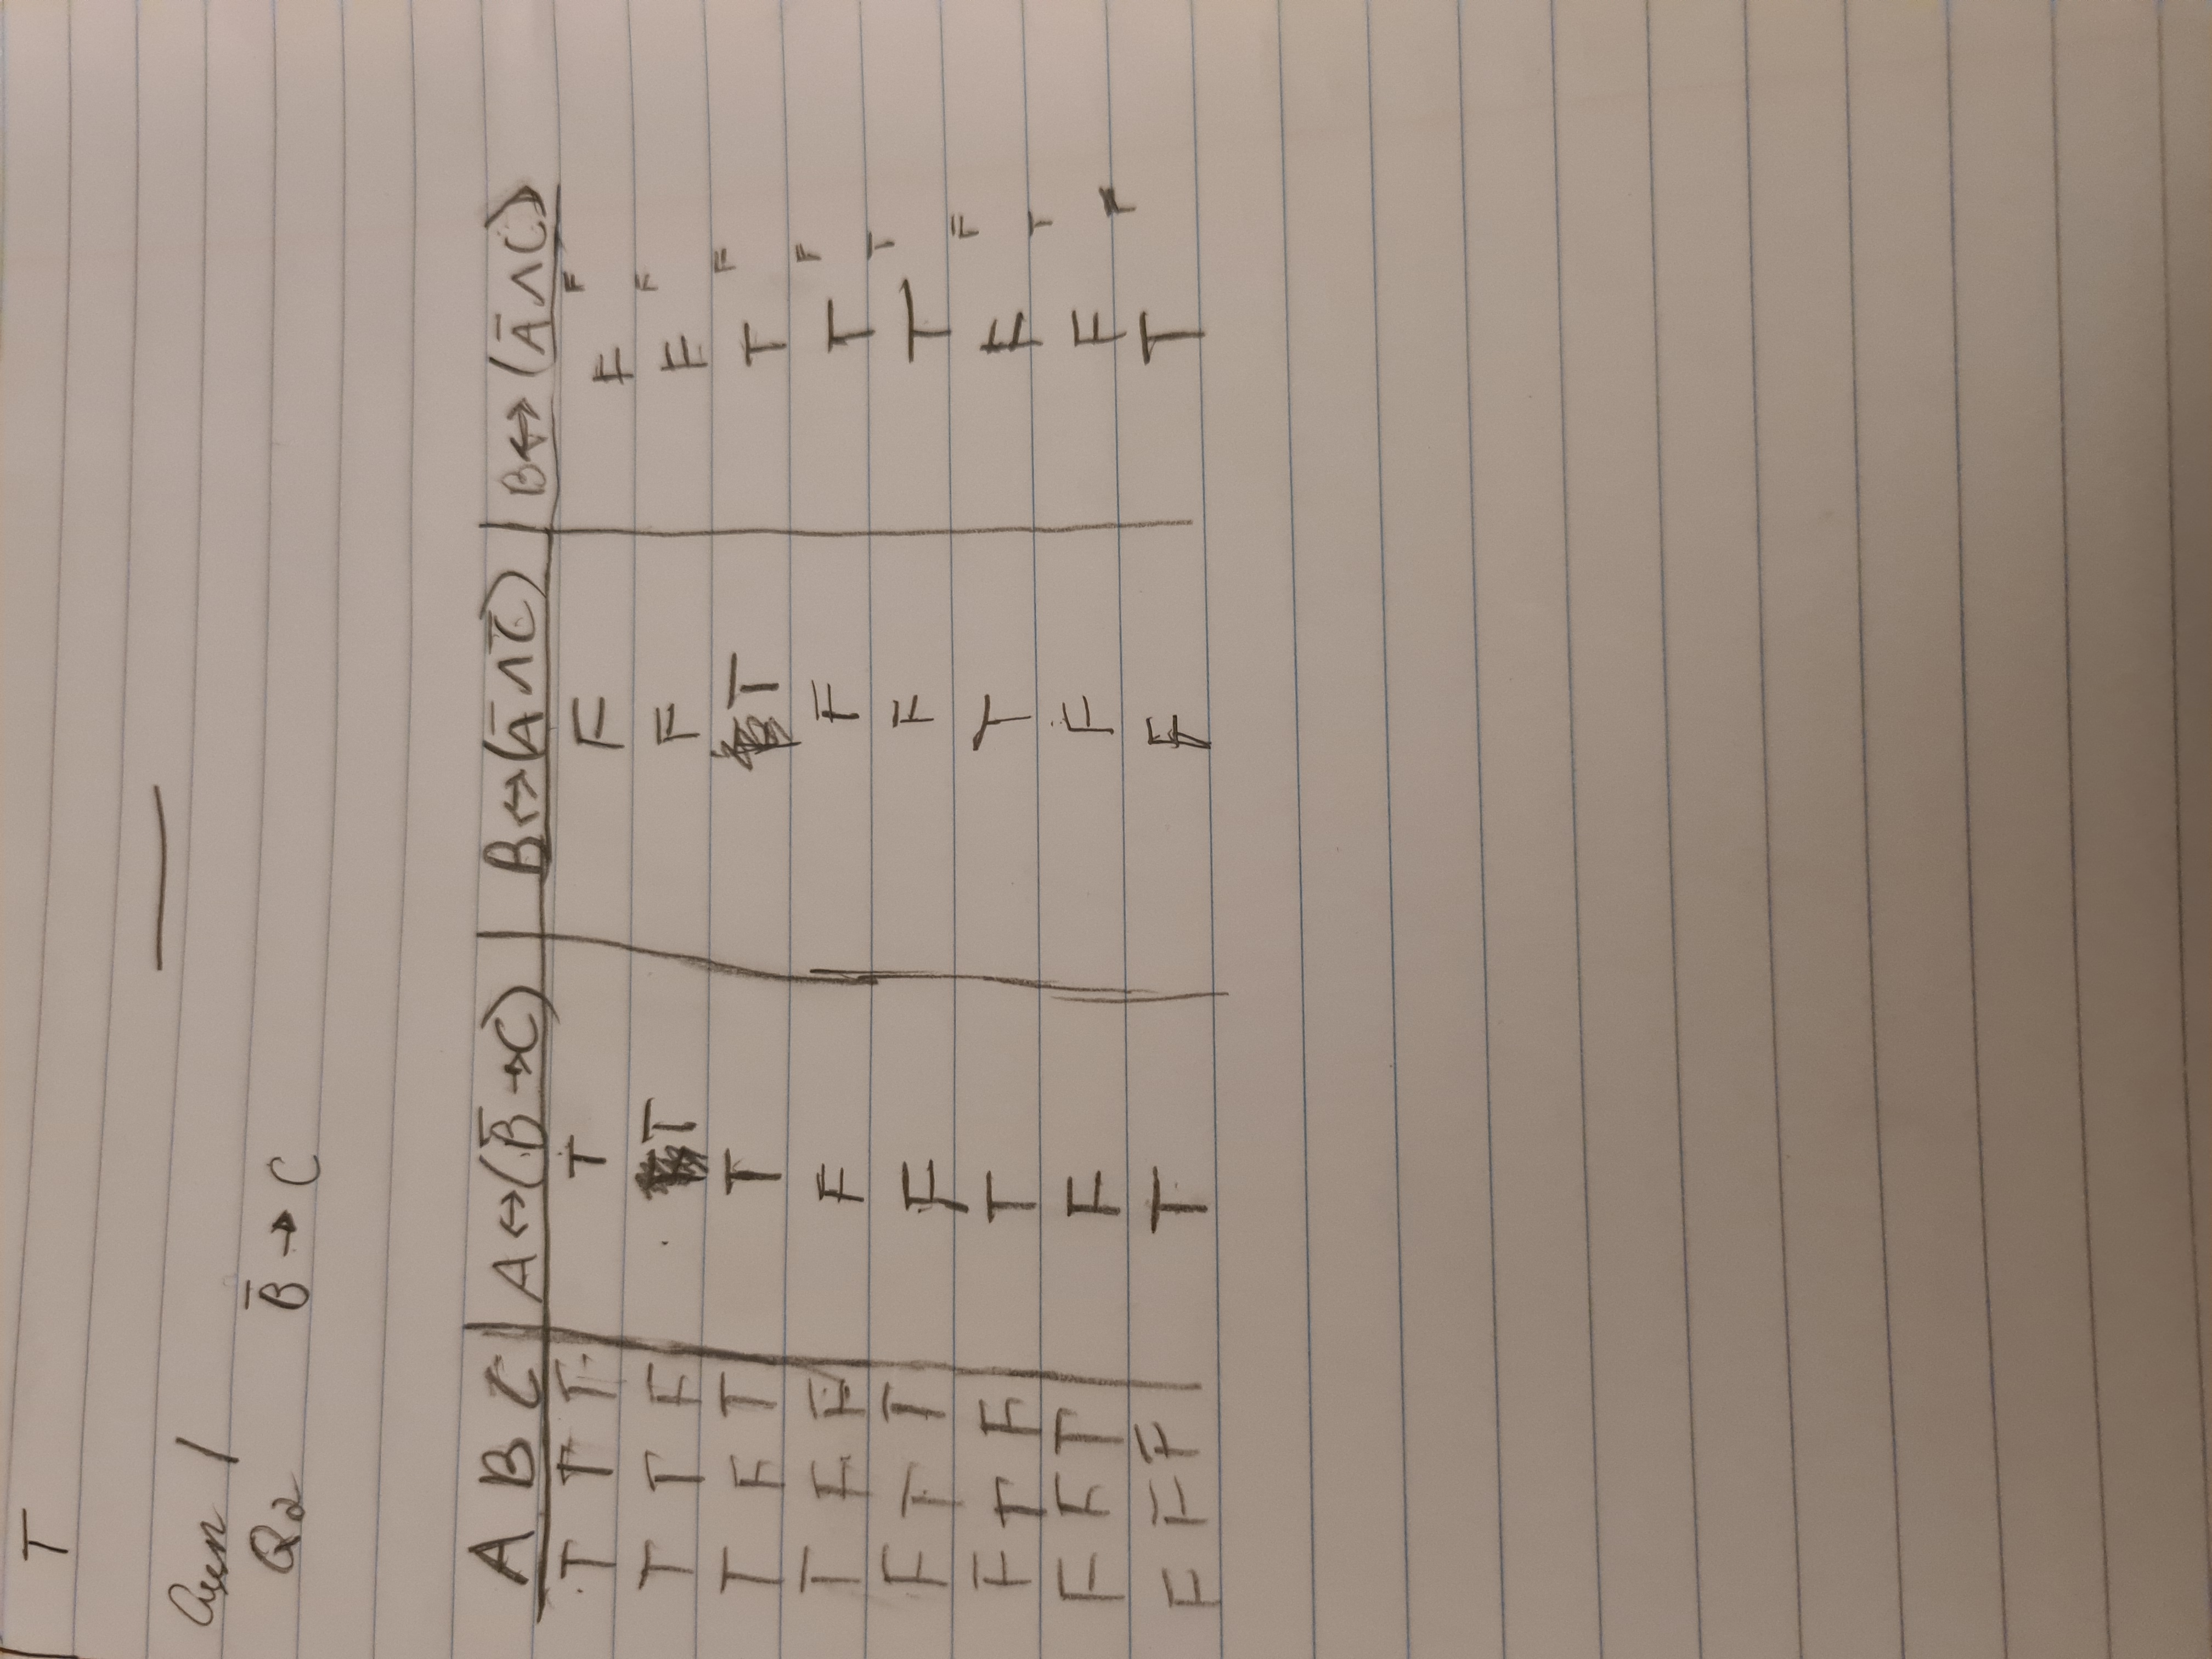 T
Assn 1
Q2 B̅ → C
A B C | A ↔ (B̅ → C) | B ↔ (A̅ ∧ C̅) | B ↔ (A̅ ∧ C)
T T T | T | F | F F
T T F | T | F | F F
T F T | T | T | T F
T F F | F | F | T F
F T T | F | F | T T
F T F | T | T | F F
F F T | F | F | F T
F F F | T | F | T